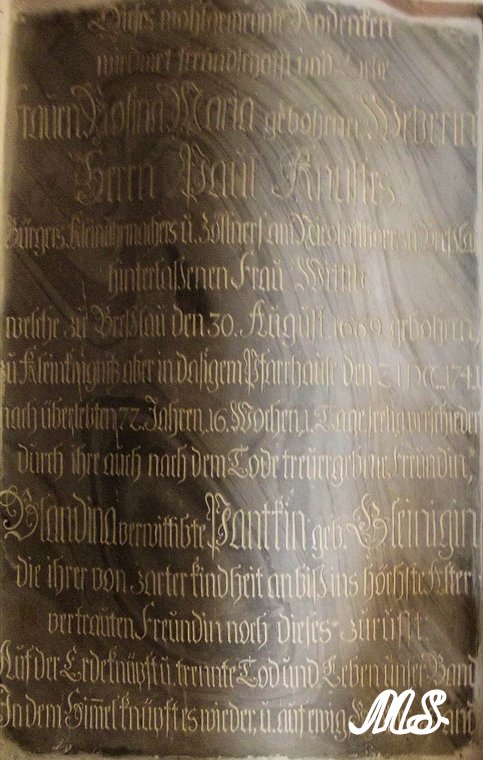 Dieses wohlgemeinte Andenken
widmet freündschafft und Liebe
Frauen Rosina Maria gebohrnen Weberin
Herrn Paul Knüsses
Bürgers, Kleinührmachers ü. Zöllners am Nicolaithore zu Breßlau
hinterlaßenen Frau Wittib
welche zü Breßlaü den 30. Augüst. 1669 gebohren,
zü Kleinknignitz aber in dasigem Pfarrhaüse den 21 DEC. 1741
nach überlebten 72. Jahren, 16. Wochen, 1. Tage seelig verschieden
dürch ihre aüch nach dem Tode treüergebene Freündin,
Blandina verwittibte Pantkin geb. Gleinigin
die ihrer von zarter kindheit an biß ins höchste Alter
vertraüten Freündin noch dieses zürüfft:
Aüf der Erde knüpft ü. trennte Tod und Leben ünser Band
In dem Him̄el knüpft es wieder, ü. aüf ewig
MS